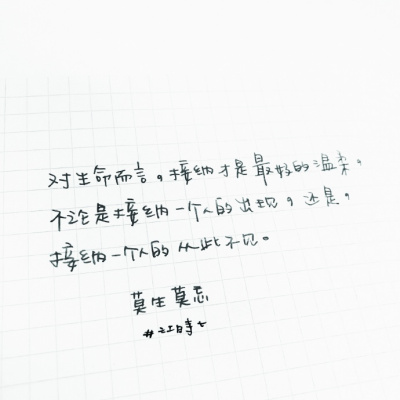 对生命而言。接纳才是最好的温柔。
不论是接纳一个人的出现。还是。
接纳一个人的从此不见。
莫生莫忘